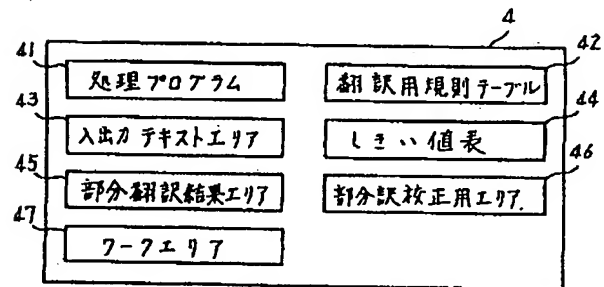 4
41
処理プログラム
42
翻訳用規則テーブル
43
入出力テキストエリア
44
しきい値表
45
部分翻訳結果エリア
46
部分訳校正用エリア.
47
ワークエリア